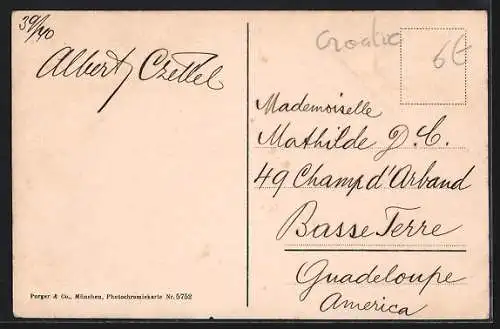 39/40
Albert Czettel
Croatia
6€
Mademoiselle
Mathilde J. C.
49 Champ d'Arband
Basse Terre
Guadeloupe
America
Purger & Co., München, Photochromiekarte Nr. 5752